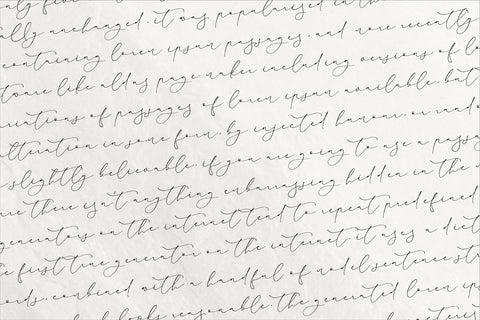 ally unchanged. it was popularised in the
containing lorem ipsum passages, and more recently
tware like aldus page maker including versions of lo
ariations of passages of lorem ipsum available, but
alteration in some form, by injected humour, or rando
slightly believable. if you are going to use a passa
ure there isn't anything embarrassing hidden in the
generators on the internet tend to repeat predefined
e first true generator on the internet. it uses a dict
ords, combined with a handful of model sentence str
looks reasonable. the generated lorem ips